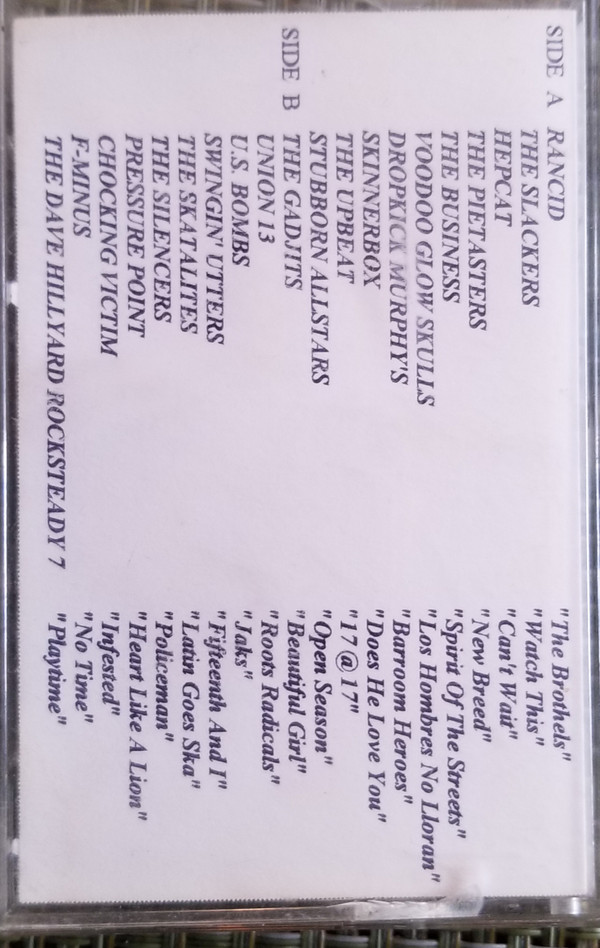 SIDE A RANCID "The Brothels"
THE SLACKERS "Watch This"
HEPCAT "Can't Wait"
THE PIETASTERS "New Breed"
THE BUSINESS "Spirit Of The Streets"
VOODOO GLOW SKULLS "Los Hombres No Lloran"
DROPKICK MURPHY'S "Barroom Heroes"
SKINNERBOX "Does He Love You"
THE UPBEAT "17@17"
STUBBORN ALLSTARS "Open Season"
SIDE B THE GADJITS "Beautiful Girl"
UNION 13 "Roots Radicals"
U.S. BOMBS "Jaks"
SWINGIN' UTTERS "Fifteenth And I"
THE SKATALITES "Latin Goes Ska"
THE SILENCERS "Policeman"
PRESSURE POINT "Heart Like A Lion"
CHOCKING VICTIM "Infested"
F-MINUS "No Time"
THE DAVE HILLYARD ROCKSTEADY 7 "Playtime"